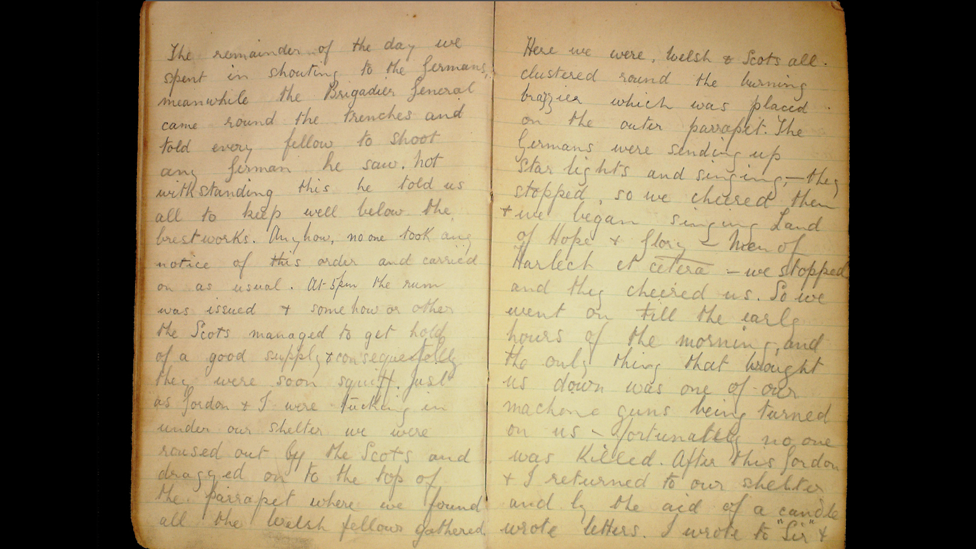 The remainder of the day we
spent in shouting to the Germans,
meanwhile the Brigadier General
came round the trenches and
told every fellow to shoot
any German he saw. Not
withstanding this he told us
all to keep well below the
brestworks. Anyhow, no one took any
notice of this order and carried
on as usual. At 5pm the rum
was issued & somehow or other
the Scots managed to get hold
of a good supply & consequentally
they were soon squiff. Just
as Gordon & I were tucking in
under our shelter we were
roused out by the Scots and
dragged on to the top of
the parrapet where we found
all the Welsh fellows gathered
Here we were, Welsh & Scots all
clustered round the burning
brazier which was placed
on the outer parrapet. The
Germans were sending up
star lights and singing, – they
stopped, so we cheered them
& we began singing Land
of Hope & Glory – Men of
Harlech et cetera – we stopped
and they cheered us. So we
went on till the early
hours of the morning, and
the only thing that brought
us down was one of our
machone guns being turned
on us – fortunately no one
was killed. After this Gordon
& I returned to our shelter
and by the aid of a candle
wrote letters. I wrote to "Sir" &